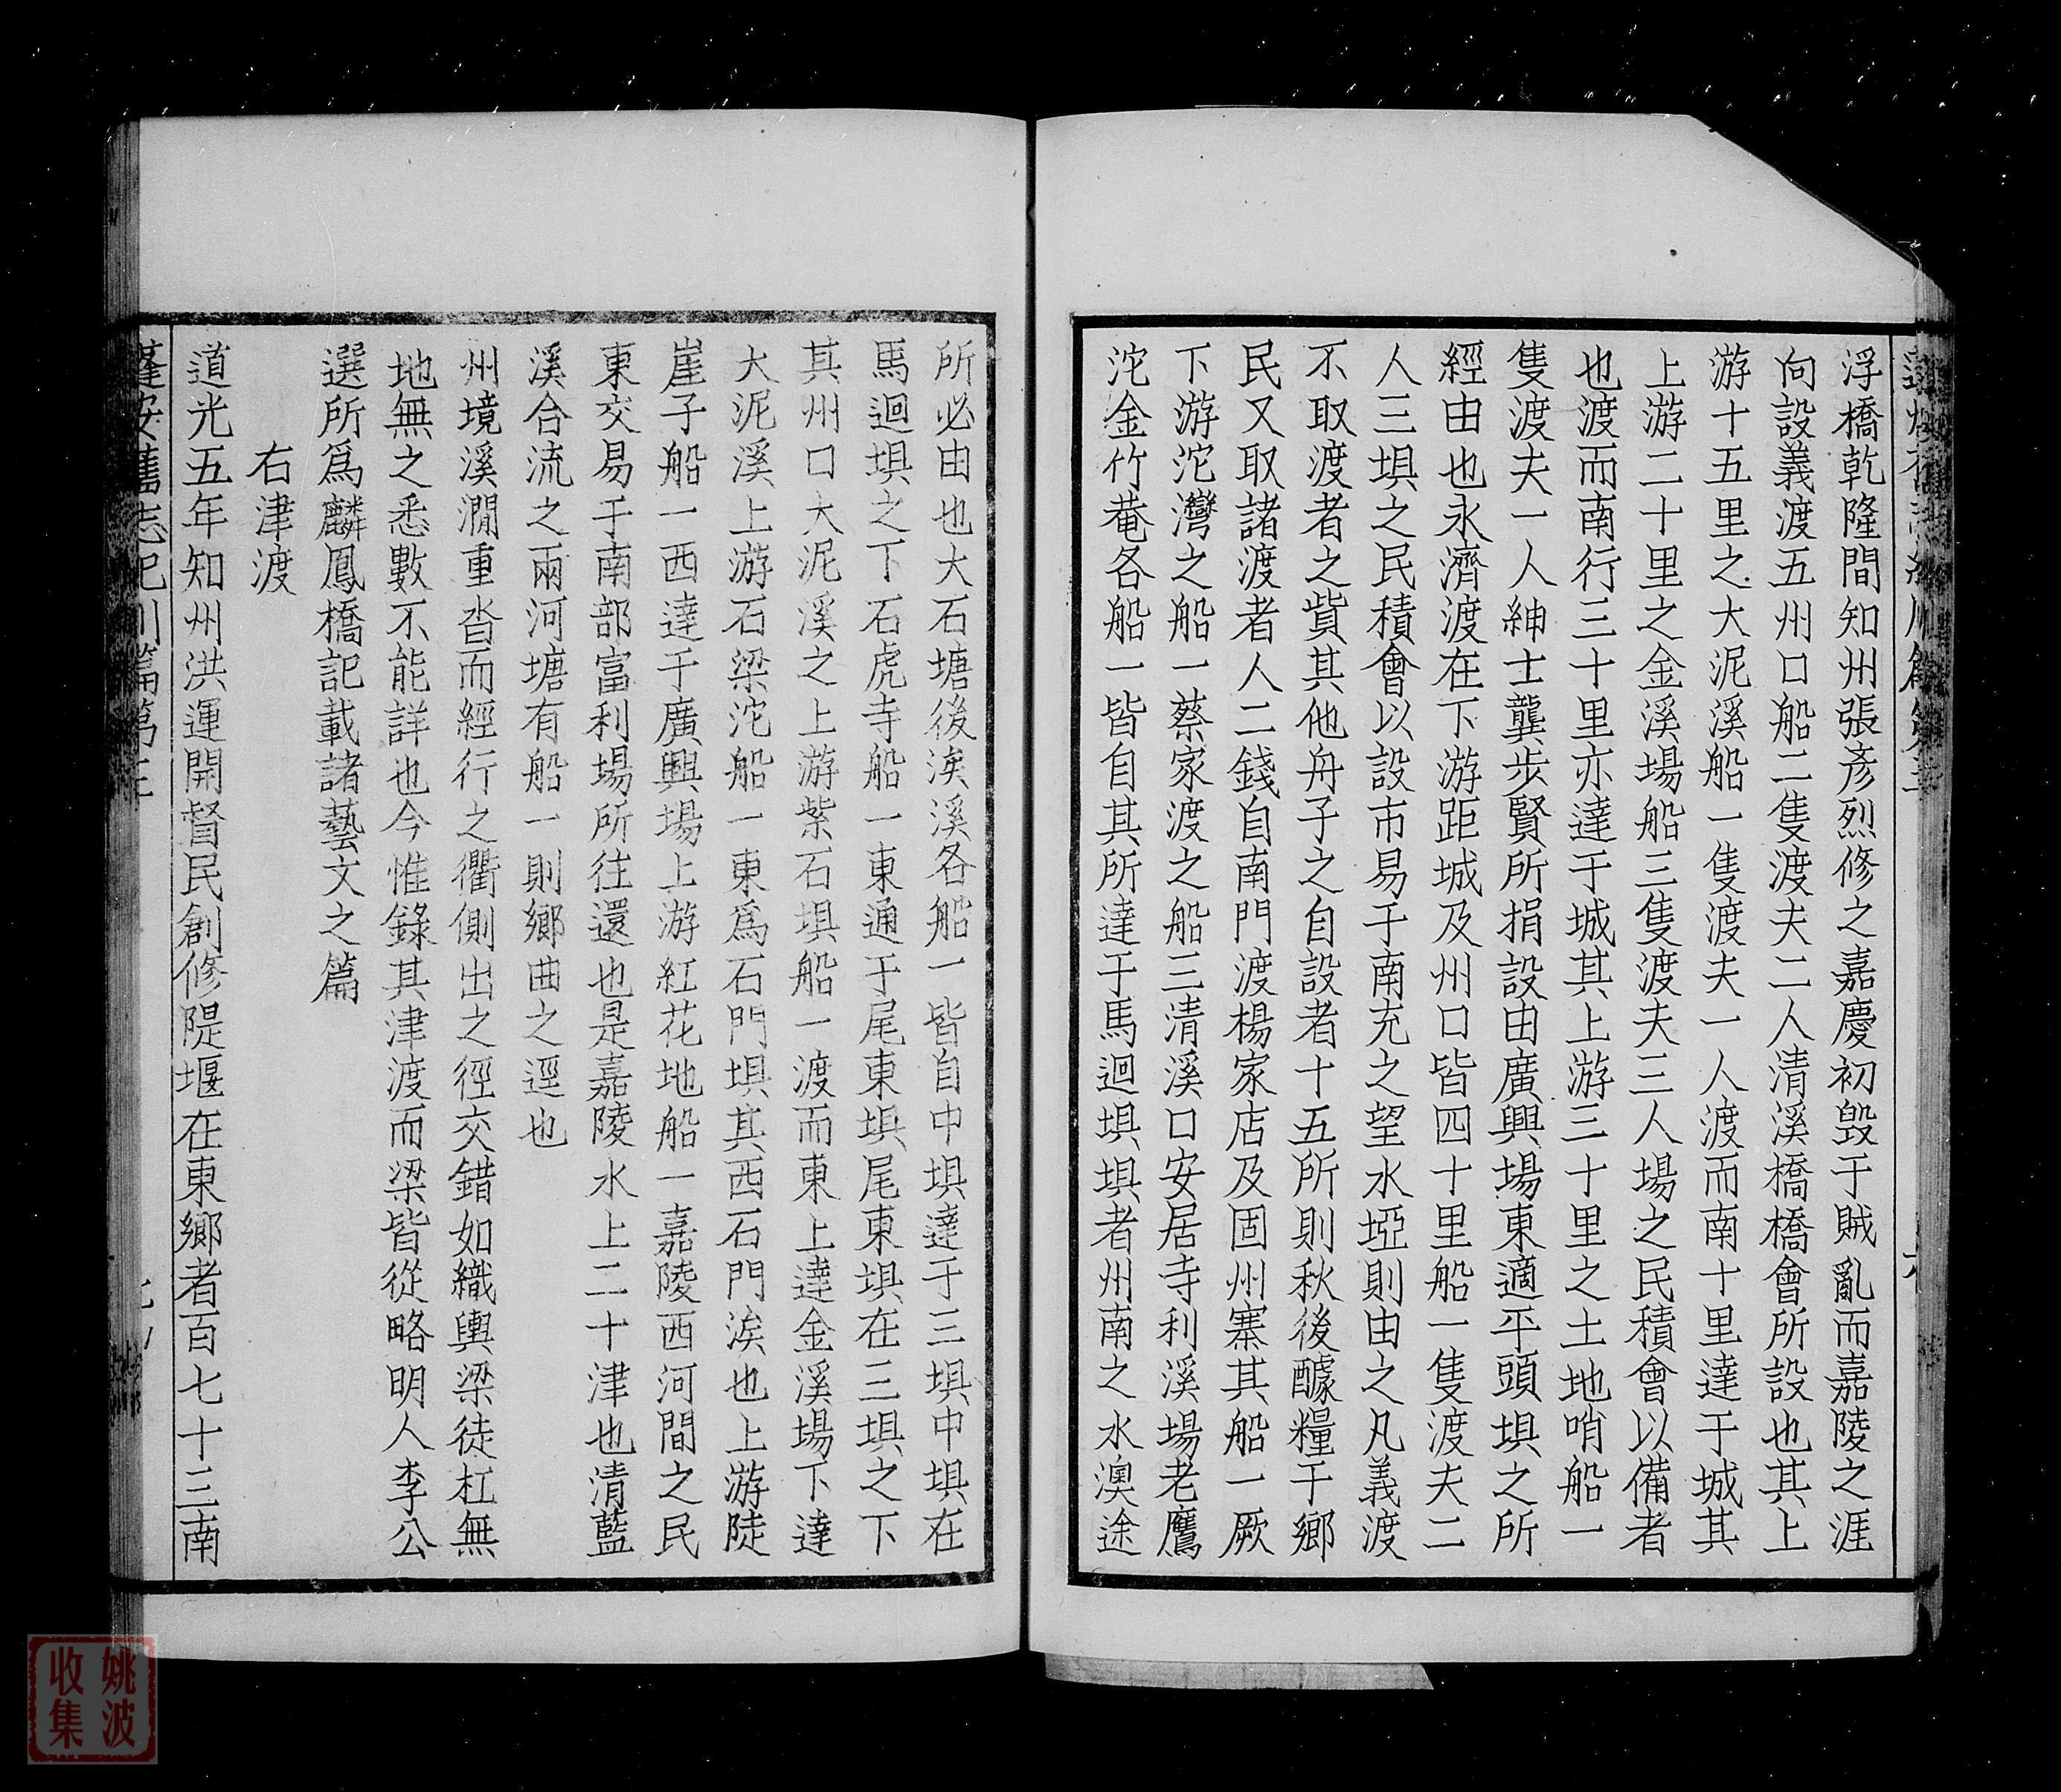 浮橋乾隆間知州張彥烈修之嘉慶初毀于賊亂而嘉陵之涯
向設義渡五州口船二隻渡夫二人清溪橋橋會所設也其上
游十五里之大泥溪船一隻渡夫一人渡而南十里達于城其
上游二十里之金溪場船三隻渡夫三人場之民積會以備者
也渡而南行三十里亦達于城其上游三十里之土地哨船一
隻渡夫一人紳士龔步賢所捐設由廣興場東適平頭垻之所
經由也永濟渡在下游距城及州口皆四十里船一隻渡夫二
人三垻之民積會以設市易于南充之望水埡則由之凡義渡
不取渡者之貲其他舟子之自設者十五所則秋後醵糧于鄉
民又取諸渡者人二錢自南門渡楊家店及固州寨其船一厥
下游沱灣之船一蔡家渡之船三清溪口安居寺利溪場老鷹
沱金竹菴各船一皆自其所達于馬迴垻垻者州南之水澳途
所必由也大石塘後溪溪各船一皆自中垻達于三垻中垻在
馬迴垻之下石虎寺船一東通于尾東垻尾東垻在三垻之下
其州口大泥溪之上游紫石垻船一渡而東上達金溪場下達
大泥溪上游石梁沱船一東爲石門垻其西石門涘也上游陡
崖子船一西達于廣興場上游紅花地船一嘉陵西河間之民
東交易于南部富利場所往還也是嘉陵水上二十津也清藍
溪合流之兩河塘有船一則鄉曲之逕也
州境溪澗重沓而經行之衢側出之徑交錯如織輿梁徒杠無
地無之悉數不能詳也今惟錄其津渡而梁皆從略明人李公
選所爲麟鳳橋記載諸藝文之篇
右津渡
道光五年知州洪運開督民創修隄堰在東鄉者百七十三南
姚波
收集